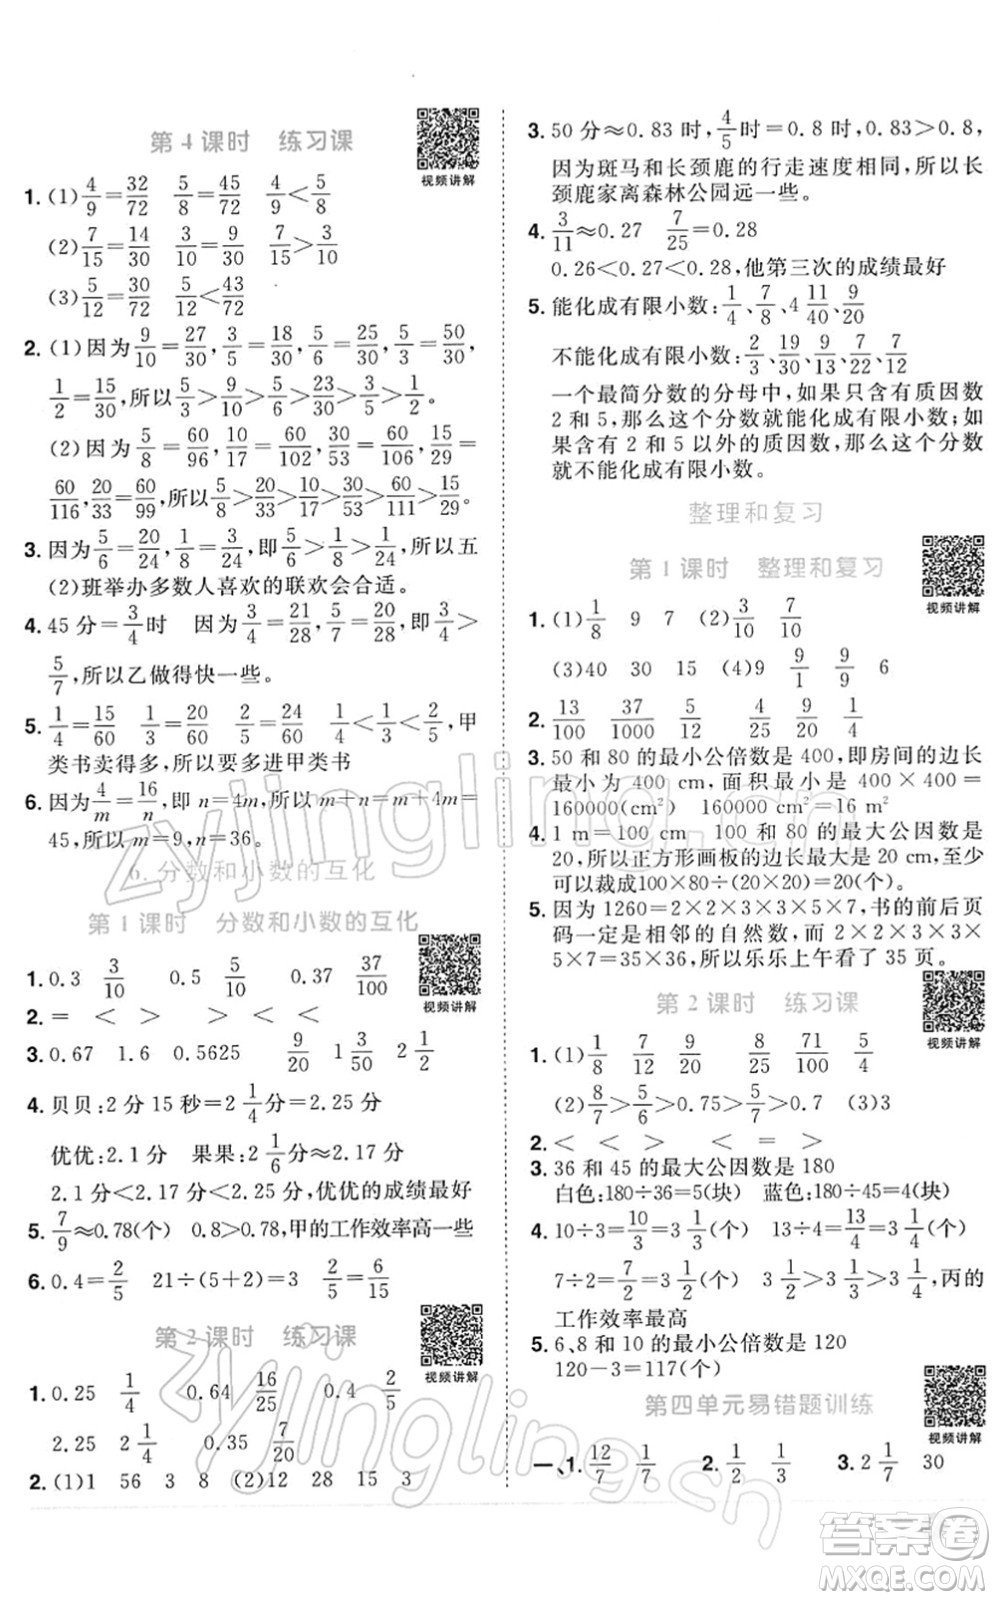 第 4 课时　练习课
视频讲解
1. (1) 4/9=32/72　5/8=45/72　4/9<5/8
(2) 7/15=14/30　3/10=9/30　7/15>3/10
(3) 5/12=30/72　5/12<43/72
2. (1)因为 9/10=27/30, 3/5=18/30, 5/6=25/30, 5/3=50/30,
1/2=15/30,所以 5/3>9/10>5/6>23/30>3/5>1/2。
(2)因为 5/8=60/96, 10/17=60/102, 15/29=
60/116, 20/33=60/99,所以 5/8>20/33>10/17>15/29。
3. 因为 5/6=20/24, 1/8=3/24,即 5/6>1/8,所以五
(2)班举办多数人喜欢的联欢会合适。
4. 45 分=3/4 时　因为 3/4=21/28, 5/7=20/28,即 3/4>
5/7,所以乙做得快一些。
5. 1/4=15/60　1/3=20/60　2/5=24/60　1/4<1/3<2/5,甲
类书卖得多,所以要多进甲类书
6. 因为 4/m=16/n,即 n=4m,所以 m+n=m+4m=
45,所以 m=9,n=36。
6. 分数和小数的互化
第 1 课时　分数和小数的互化
视频讲解
1. 0.3　3/10　0.5　5/10　0.37　37/100
2. =　<　>　　>　<
3. 0.67　1.6　0.5625　9/20　3/50　2 1/2
4. 贝贝:2 分 15 秒=2 1/4 分=2.25 分
优优:2.1 分　果果:2 1/6 分≈2.17 分
2.1 分<2.17 分<2.25 分,优优的成绩最好
5. 7/9≈0.78(个)　0.8>0.78,甲的工作效率高一些
6. 0.4=2/5　21÷(5+2)=3　2/5=6/15
第 2 课时　练习课
视频讲解
1. 0.25　1/4　0.64　16/25
2.25　2 1/4　0.35　7/20
2. (1)1　56　3　8　(2)12　28　15　3
3. 50 分≈0.83 时, 4/5 时=0.8 时,0.83>0.8,
因为斑马和长颈鹿的行走速度相同,所以长
颈鹿家离森林公园远一些。
4. 3/11≈0.27　7/25=0.28
0.26<0.27<0.28,他第三次的成绩最好
5. 能化成有限小数: 1/4、7/8、4 11/40、9/20
不能化成有限小数: 2/3、19/30、9/13、7/22、7/12
一个最简分数的分母中,如果只含有质因数
2 和 5,那么这个分数就能化成有限小数;如
果含有 2 和 5 以外的质因数,那么这个分数
就不能化成有限小数。
整理和复习
第 1 课时　整理和复习
视频讲解
1. (1) 1/8　9　7　(2) 3/10　7/10
(3)40　30　15　(4)9　9/1　9/9　6
2. 13/100　37/1000　5/12　4/25　9/20　1/4
3. 50 和 80 的最小公倍数是 400,即房间的边长
最小为 400 cm,面积最小是 400×400=
160000(cm²)　160000 cm²=16 m²
4. 1 m=100 cm　100 和 80 的最大公因数是
20,所以正方形画板的边长最大是 20 cm,至少
可以裁成100×80÷(20×20)=20(个)。
5. 因为 1260=2×2×3×3×5×7,书的前后页
码一定是相邻的自然数,而 2×2×3×3=
5×7+1,所以乐乐上午看了 35 页。
第 2 课时　练习课
视频讲解
1. (1) 1/8　7/12　9/20　8/25　71/100　5/4
(2) 8/7>5/6>0.75>5/7>0.7　(3)3
2. <　<　>　　<　=　>
3. 36 和 45 的最大公因数是 180
白色:180÷36=5(块)　蓝色:180÷45=4(块)
4. 10÷3=10/3=3 1/3(个)　13÷4=13/4=3 1/4(个)
7÷2=7/2=3 1/2(个)　3 1/2>3 1/3>3 1/4,丙的
工作效率最高
5. 6、8 和 10 的最小公倍数是 120
120-3=117(个)
第四单元易错题训练
视频讲解
一、1. 12/7　1/7　2. 1/2　1/2　3. 2 1/7　30
zyjingling.cn
zyjingling.cn
答案圈
MXQE.COM